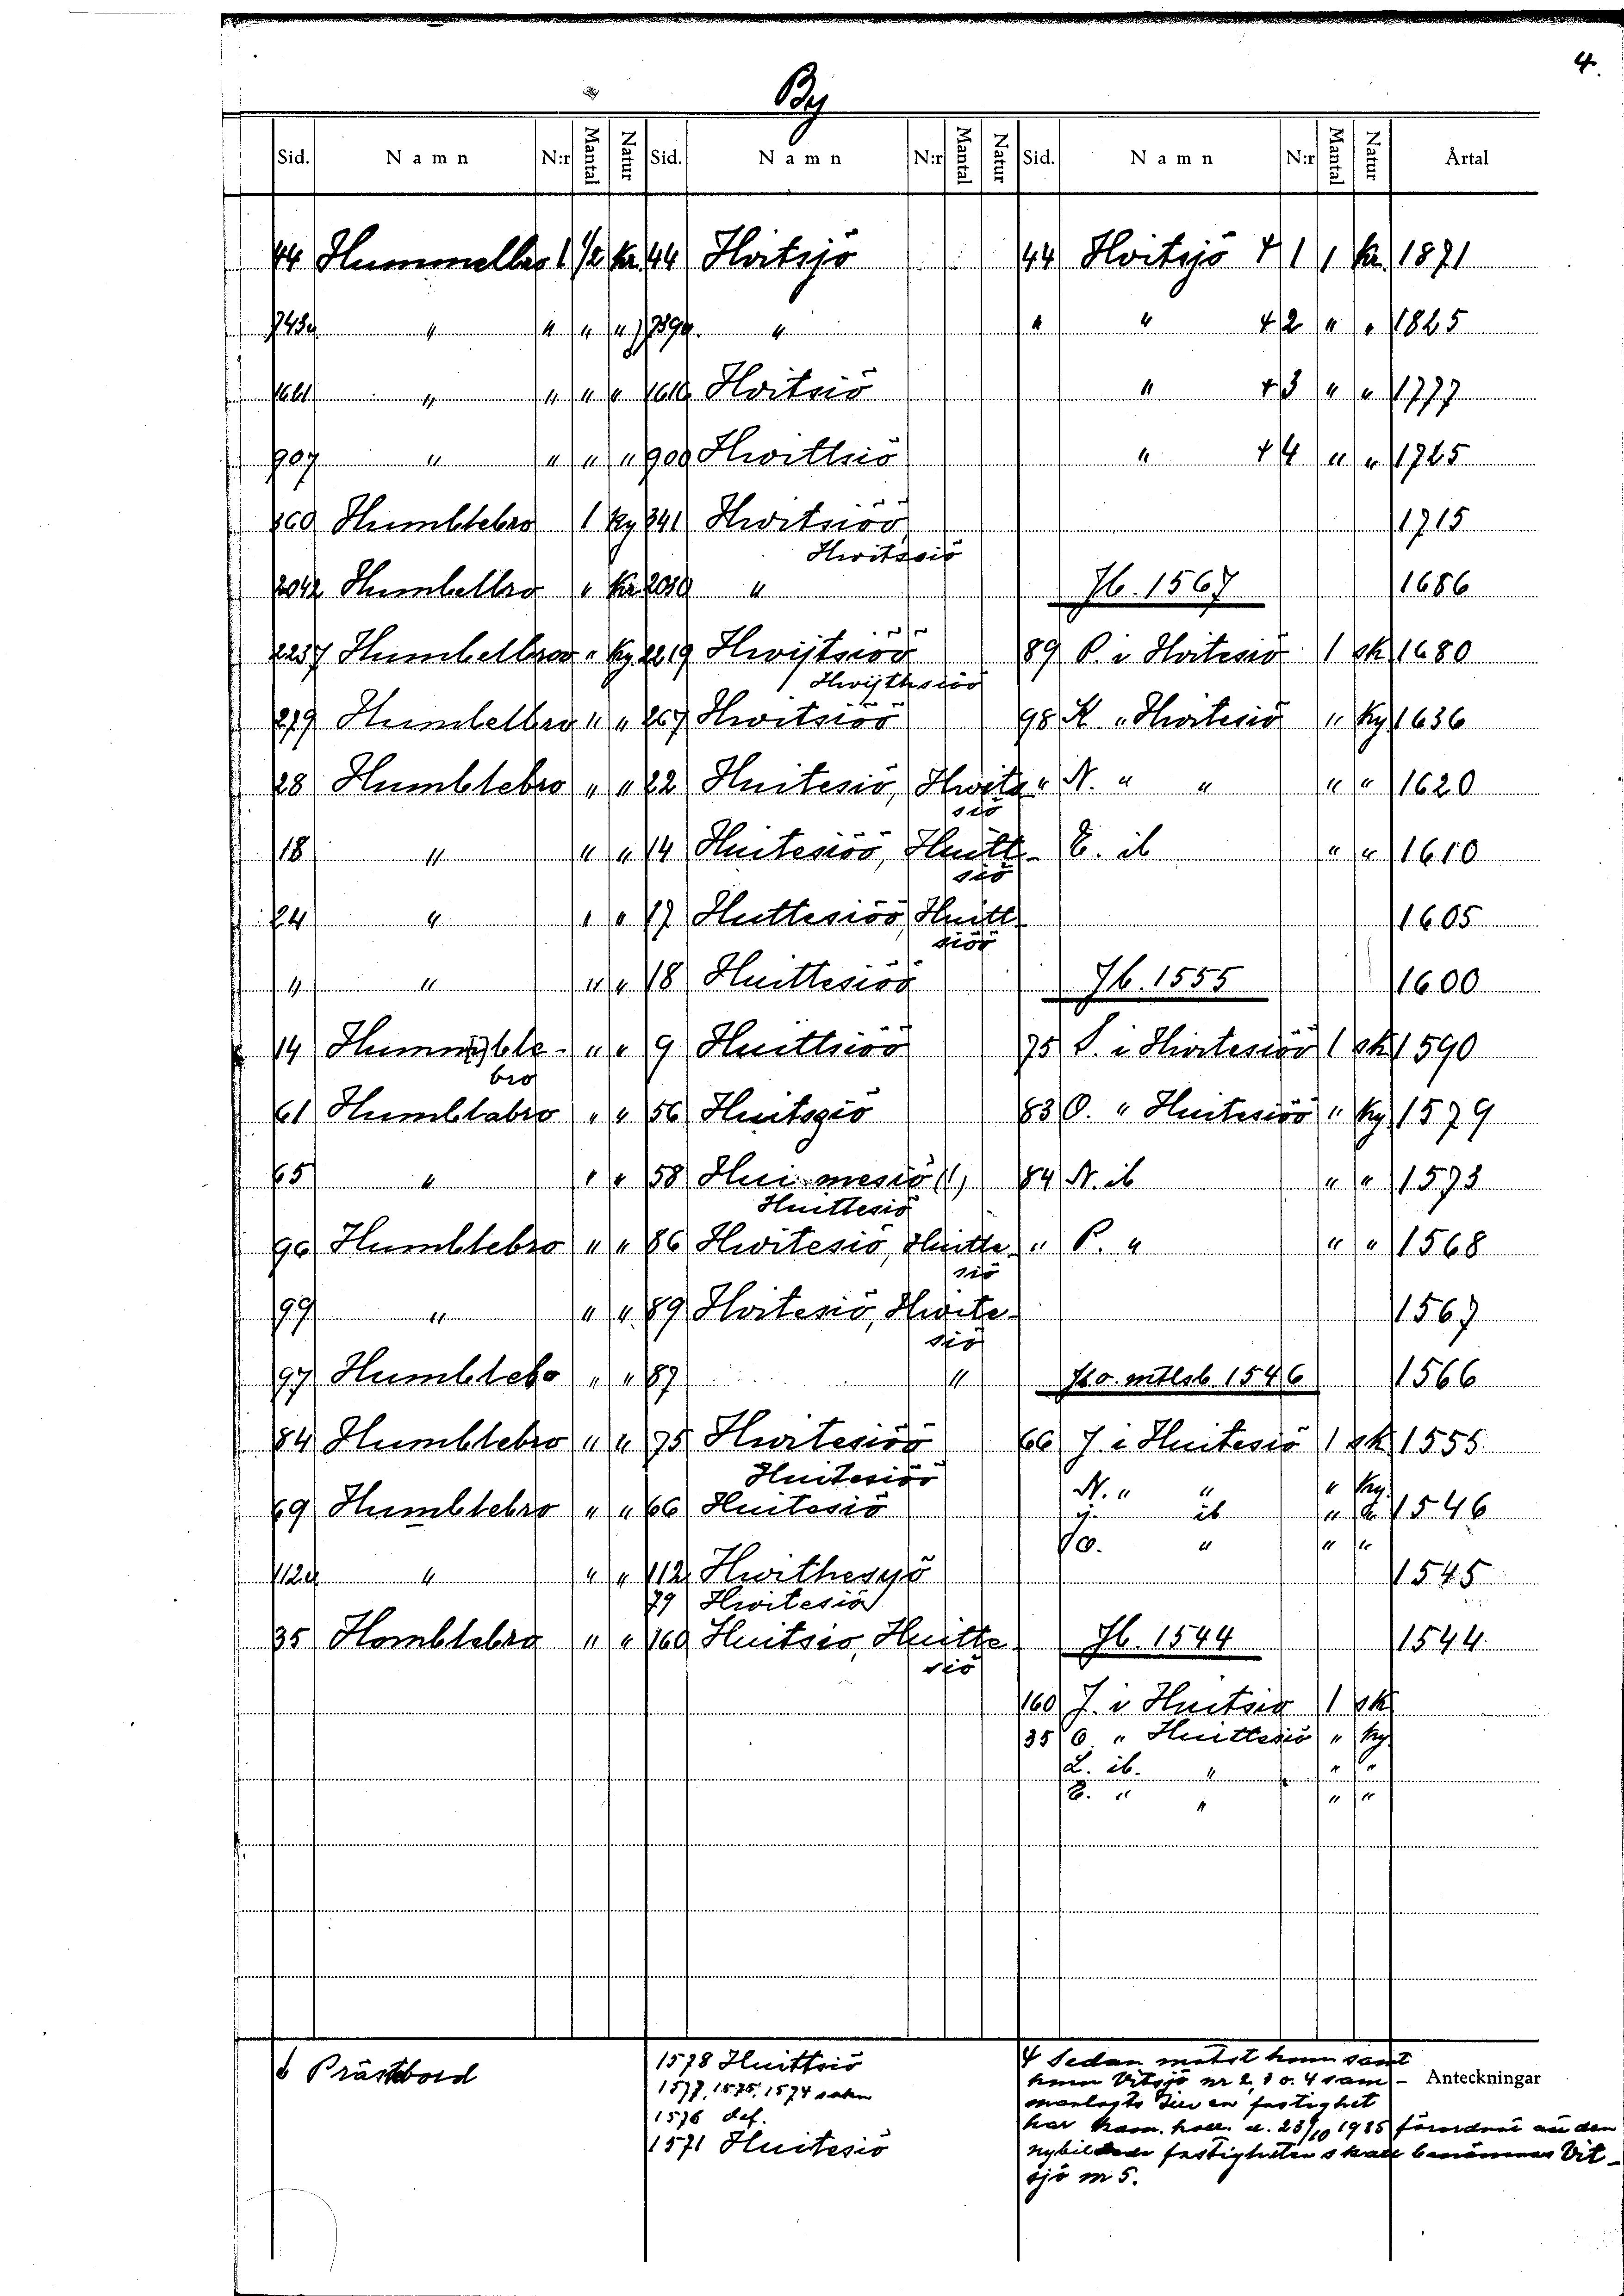 4.
By
Sid. Namn N:r Mantal Natur Sid. Namn N:r Mantal Natur Sid. Namn N:r Mantal Natur Årtal
44 Hummelbro 1 1/2 kr. 44 Hvitsjö 44 Hvitsjö + 1 1 kr. 1871
" " " " " " " + 2 " " 1825
1661 " " " " 1616 Hvitsiö " + 3 " " 1777
907 " " " " 900 Hwittsiö " + 4 " " 1725
360 Humblebro 1 ky 341 Hwitsiöö 1715
Hwitssiö
2042 Humbelbro " kr. 2030 " Jb. 1567 1686
2237 Humbelbroo " ky. 2219 Hwijtsiöö 89 P. i Hvitesiö 1 sk 1680
Hwijthsiöö
279 Humbelbro " " 267 Hwitsiöö 98 K " Hvitesiö " ky 1636
28 Humblebro " " 22 Huitesiö, Hwits- " N. " " " " 1620
siö
18 " " " 14 Huitesiöö, Huitt- E. ib " " 1610
siö
24 " " " 17 Huttesiöö, Huitt 1605
siöö
" " " " 18 Huittesiöö Jb. 1555 1600
14 Hummble- " " 9 Huittsiöö 75 S. i Hwitesiöö 1 sk 1590
bro
61 Humblabro " " 56 Huitsgiö 83 O. " Huitesiöö " ky 1579
65 " " " 58 Huimesiö (!) 84 N. ib " " 1573
Huittesiö
96 Humblebro " " 86 Hwitesiö, Huitte- " P. " " " 1568
siö
99 " " " 89 Hvitesiö, Hwite- 1567
siö
97 Humblebo " " 87 " Ko. mtlsb. 1546 1566
84 Humblebro " " 75 Hwitesiöö 66 J i Huitesiö 1 sk 1555
Huitesiöö N. " " " ky.
69 Humblebro " " 66 Huitesiö ib " " 1546
" " "
112 " " " 112 Hwithesyö 1545
79 Hwitesiö
35 Homblebro " " 160 Huitsio, Huitte- Jb. 1544 1544
siö
160 J. i Huitsio 1 sk
35 O. " Huittesiö " ky
L. ib. " " "
E. " " " "
Prästbord
1578 Huittsiö
1577, 1575, 1574 sakn
1576 def.
1571 Huitesiö
Anteckningar
+ Sedan mtlst hmn samt
hmn Vitsjö nr 2, 3 o. 4 sam-
manlagts till en fastighet
har Kam. koll. d. 23/10 1935 förordnat att den
nybildade fastigheten skall benämnas Vit-
sjö nr 5.